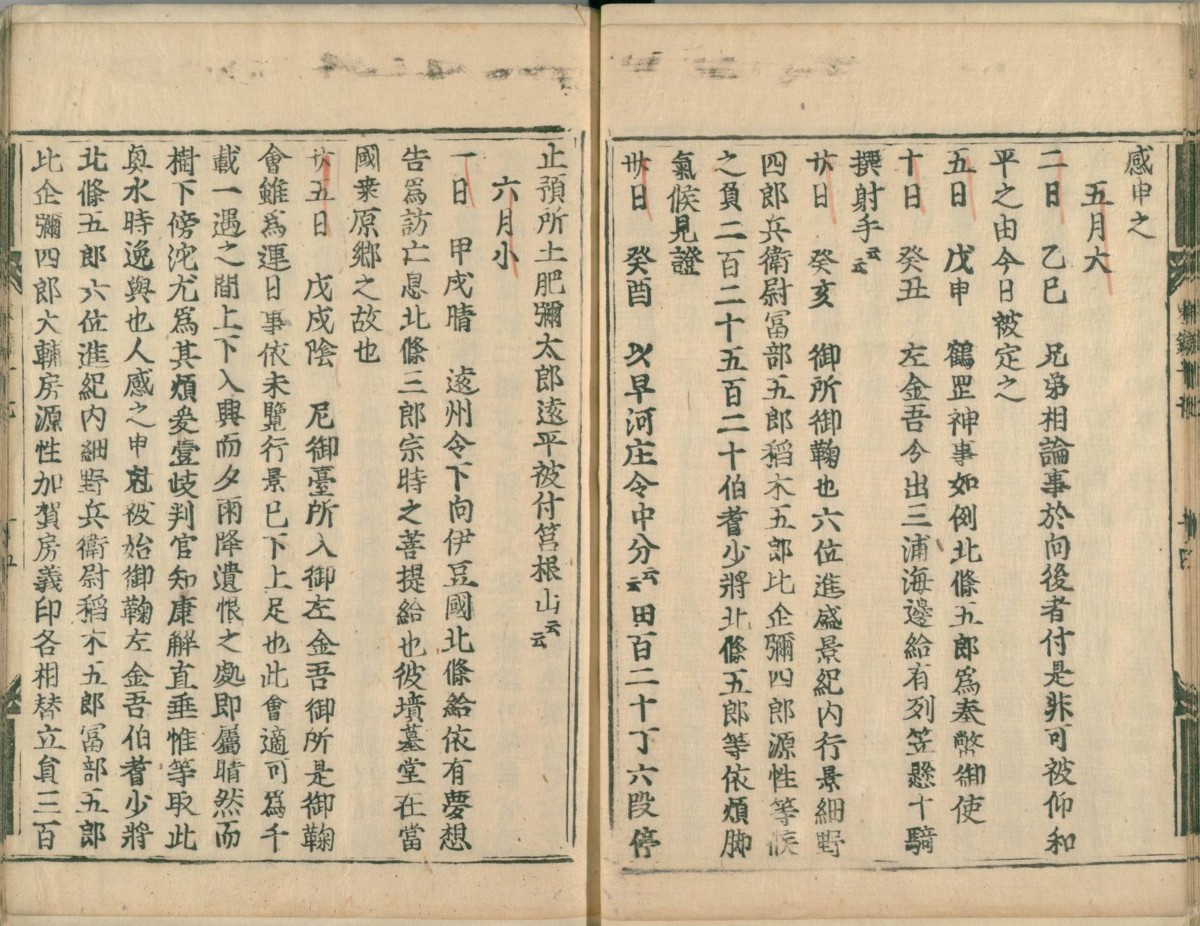 感申之
五月大
二日　乙巳　兄弟相論事於向後者付是非可被仰和
平之由今日被定之
五日　戊申　鶴罡神事如例北條五郎爲奉幣御使
十日　癸丑　左金吾令出三浦海邊給有列笠懸十騎
撰射手云云
廿日　癸亥　御所御鞠也六位進盛景紀内行景細野
四郎兵衛尉冨部五郎稻木五郎比企彌四郎源性等候
之負二百二十五百二十伯耆少將北條五郎等依煩脚
氣候見證
卅日　癸酉　以早河庄令中分云云田百二十丁六段停
止預所土肥彌太郎遠平被付筥根山云云
六月小
一日　甲戌晴　遠州令下向伊豆國北條給依有夢想
告爲訪亡息北條三郎宗時之菩提給也彼墳墓堂在當
國桒原郷之故也
廿五日　戊戌陰　尼御臺所入御左金吾御所是御鞠
會雖爲連日事依未覽行景已下上足也此會適可爲千
載一遇之間上下入興而夕雨降遺恨之處即屬晴然而
樹下滂沱尤爲其煩爰壹岐判官知康解直垂帷等取此
奧水時逸興也人感之申尅彼始御鞠左金吾伯耆少將
北條五郎六位進紀内細野兵衛尉稻木五郎冨部五郎
比企彌四郎大輔房源性加賀房義印各相替立員三百